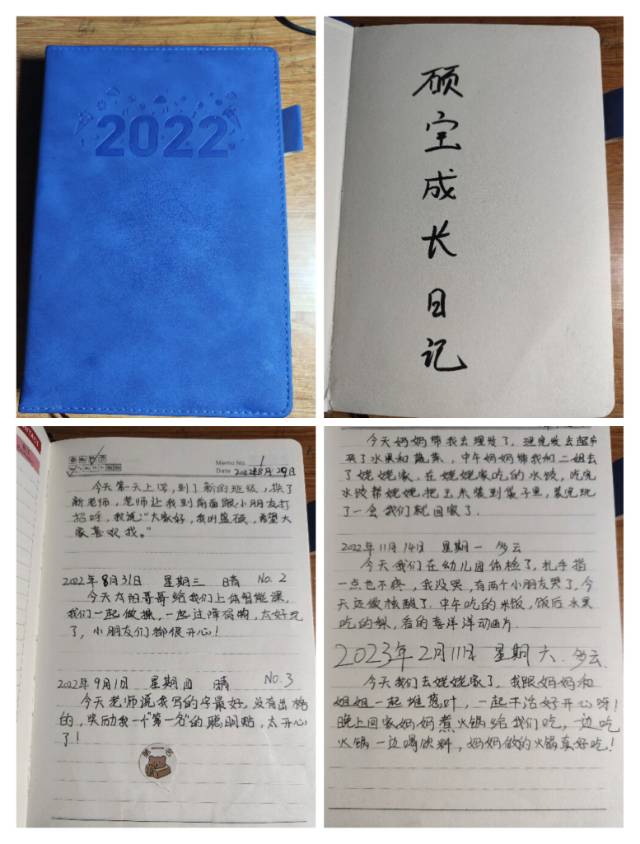 2022
硕宝成长日记
Memo No. 1
Date 2022年8月29日
今天第一天上学,到了新的班级,换了
新老师,老师让我到前面跟小朋友打
招呼,我说"大家好,我叫
希望大
家喜欢我。"
2022年8月31日 星期三 晴 No.2
今天太阳哥哥给我们上体智能课,
我们一起做操,一起过障碍物,太好玩
了,小朋友们都很开心!
2022年9月1日 星期四 晴 No.3
今天老师说我写的字最好,没有出格
的,奖励我一个"第一名"的聪明贴,太开心
了!
第一名
今天妈妈带我去理发了,理完发去超市
买了水果和蔬菜,中午妈妈带我和二姐去
了姥姥家,在姥姥家吃的水饺,吃完
水饺帮姥姥把玉米装到袋子里,装完玩
了一会我们就回家了.
2022年11月14日 星期一 多云
今天我们在幼儿园体检了,扎手指
一点也不疼,我没哭,有两个小朋友哭了,今
天还做核酸了.中午吃的米饭,饭后水果
吃的梨,看的喜洋洋动画片
2023年2月11日 星期六.多云
今天我们去姥姥家了,我跟妈妈和
姐姐一起堆葱叶,一起干活好开心呀!
晚上回家妈妈煮火锅给我们吃,一边吃
火锅一边喝饮料,妈妈做的火锅真好吃!